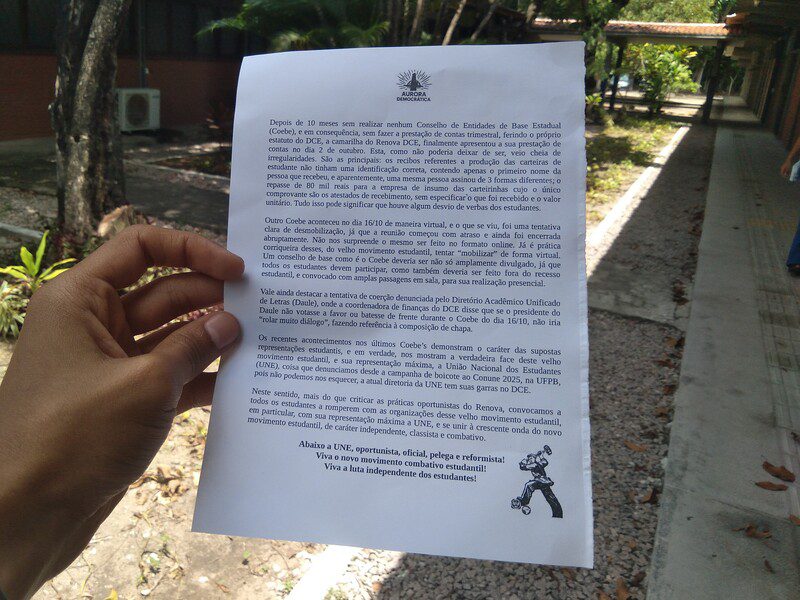 AURORA
DEMOCRÁTICA
Depois de 10 meses sem realizar nenhum Conselho de Entidades de Base Estadual
(Coebe), e em consequência, sem fazer a prestação de contas trimestral, ferindo o próprio
estatuto do DCE, a camarilha do Renova DCE, finalmente apresentou a sua prestação de
contas no dia 2 de outubro. Esta, como não poderia deixar de ser, veio cheia de
irregularidades. São as principais: os recibos referentes a produção das carteiras de
estudante não tinham uma identificação correta, contendo apenas o primeiro nome da
pessoa que recebeu, e aparentemente, uma mesma pessoa assinou de 3 formas diferentes; o
repasse de 80 mil reais para a empresa de insumo das carteirinhas cujo o único
comprovante são os atestados de recebimento, sem especificar o que foi recebido e o valor
unitário. Tudo isso pode significar que houve algum desvio de verbas dos estudantes.
Outro Coebe aconteceu no dia 16/10 de maneira virtual, e o que se viu, foi uma tentativa
clara de desmobilização, já que a reunião começou com atraso e ainda foi encerrada
abruptamente. Não nos surpreende o mesmo ser feito no formato online. Já é prática
corriqueira desses, do velho movimento estudantil, tentar “mobilizar” de forma virtual.
Um conselho de base como é o Coebe deveria ser não só amplamente divulgado, já que
todos os estudantes devem participar, como também deveria ser feito fora do recesso
estudantil, e convocado com amplas passagens em sala, para sua realização presencial.
Vale ainda destacar a tentativa de coerção denunciada pelo Diretório Acadêmico Unificado
de Letras (Daule), onde a coordenadora de finanças do DCE disse que se o presidente do
Daule não votasse a favor ou batesse de frente durante o Coebe do dia 16/10, não iria
“rolar muito diálogo”, fazendo referência à composição de chapa.
Os recentes acontecimentos nos últimos Coebe’s demonstram o caráter das supostas
representações estudantis, e em verdade, nos mostram a verdadeira face deste velho
movimento estudantil, e sua representação máxima, a União Nacional dos Estudantes
(UNE), coisa que denunciamos desde a campanha de boicote ao Conune 2025, na UFPB,
pois não podemos nos esquecer, a atual diretoria da UNE tem suas garras no DCE.
Neste sentido, mais do que criticar as práticas oportunistas do Renova, convocamos a
todos os estudantes a romperem com as organizações desse velho movimento estudantil,
em particular, com sua representação máxima a UNE, e se unir à crescente onda do novo
movimento estudantil, de caráter independente, classista e combativo.
Abaixo a UNE, oportunista, oficial, pelega e reformista!
Viva o novo movimento combativo estudantil!
Viva a luta independente dos estudantes!